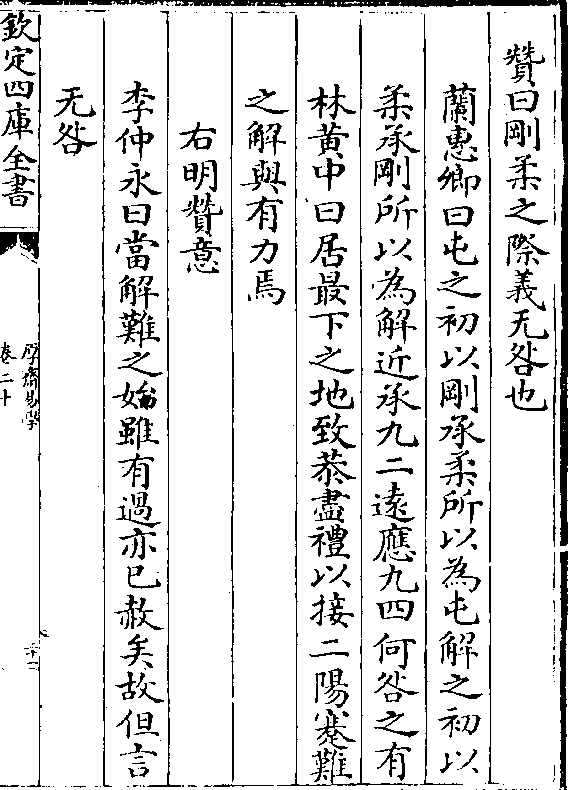 贊曰剛柔之際義无咎也
蘭惠卿曰屯之初以剛承柔所以為屯解之初以
柔承剛所以為解近承九二遠應九四何咎之有
林黄中曰居最下之地致恭盡禮以接二陽蹇難
之解與有力焉
右明贊意
李仲永曰當解難之始雖有過亦已赦矣故但言
无咎
欽定四庫全書
厚齋易學
卷二十